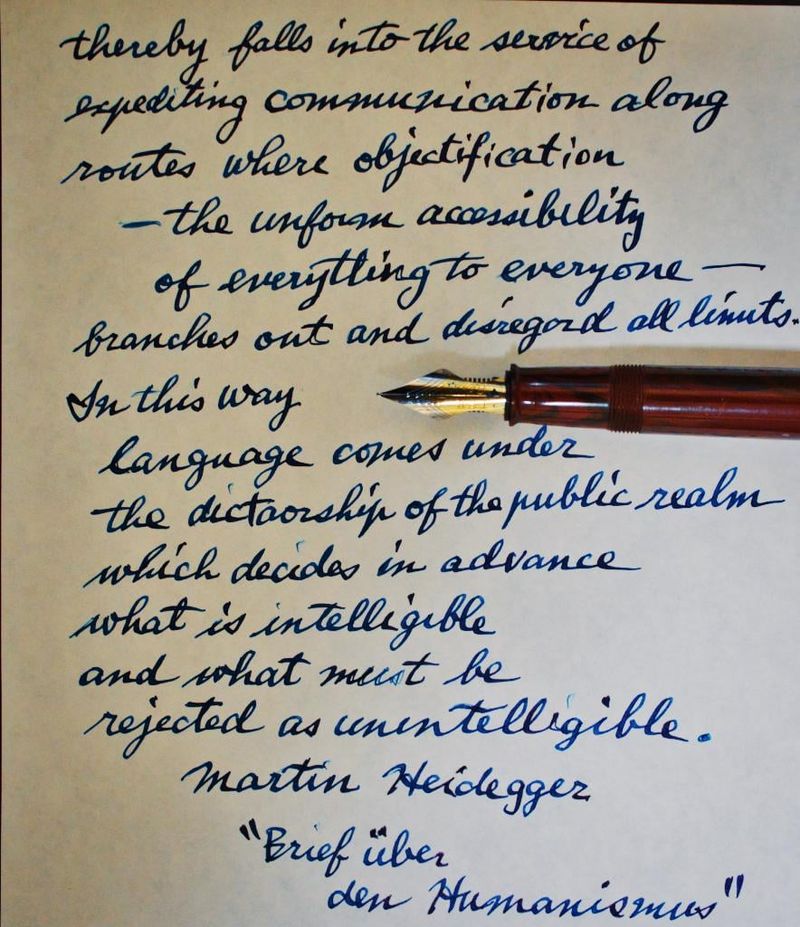 thereby falls into the service of
expediting communication along
routes where objectification
— the unform accessibility
of everything to everyone —
branches out and disregard all limits.
In this way
language comes under
the dictaorship of the public realm
which decides in advance
what is intelligible
and what must be
rejected as unintelligible.
Martin Heidegger
"Brief über
den Humanismus"